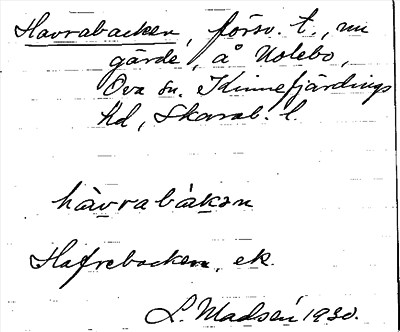 Havrabacken, försv. t., nu
gärde, å Uslebo,
Öva sn. Kinnefjärdings
hd, Skarab. l.
hàvrabàkən
Hafrebacken, ek.
L. Madsén 1930.